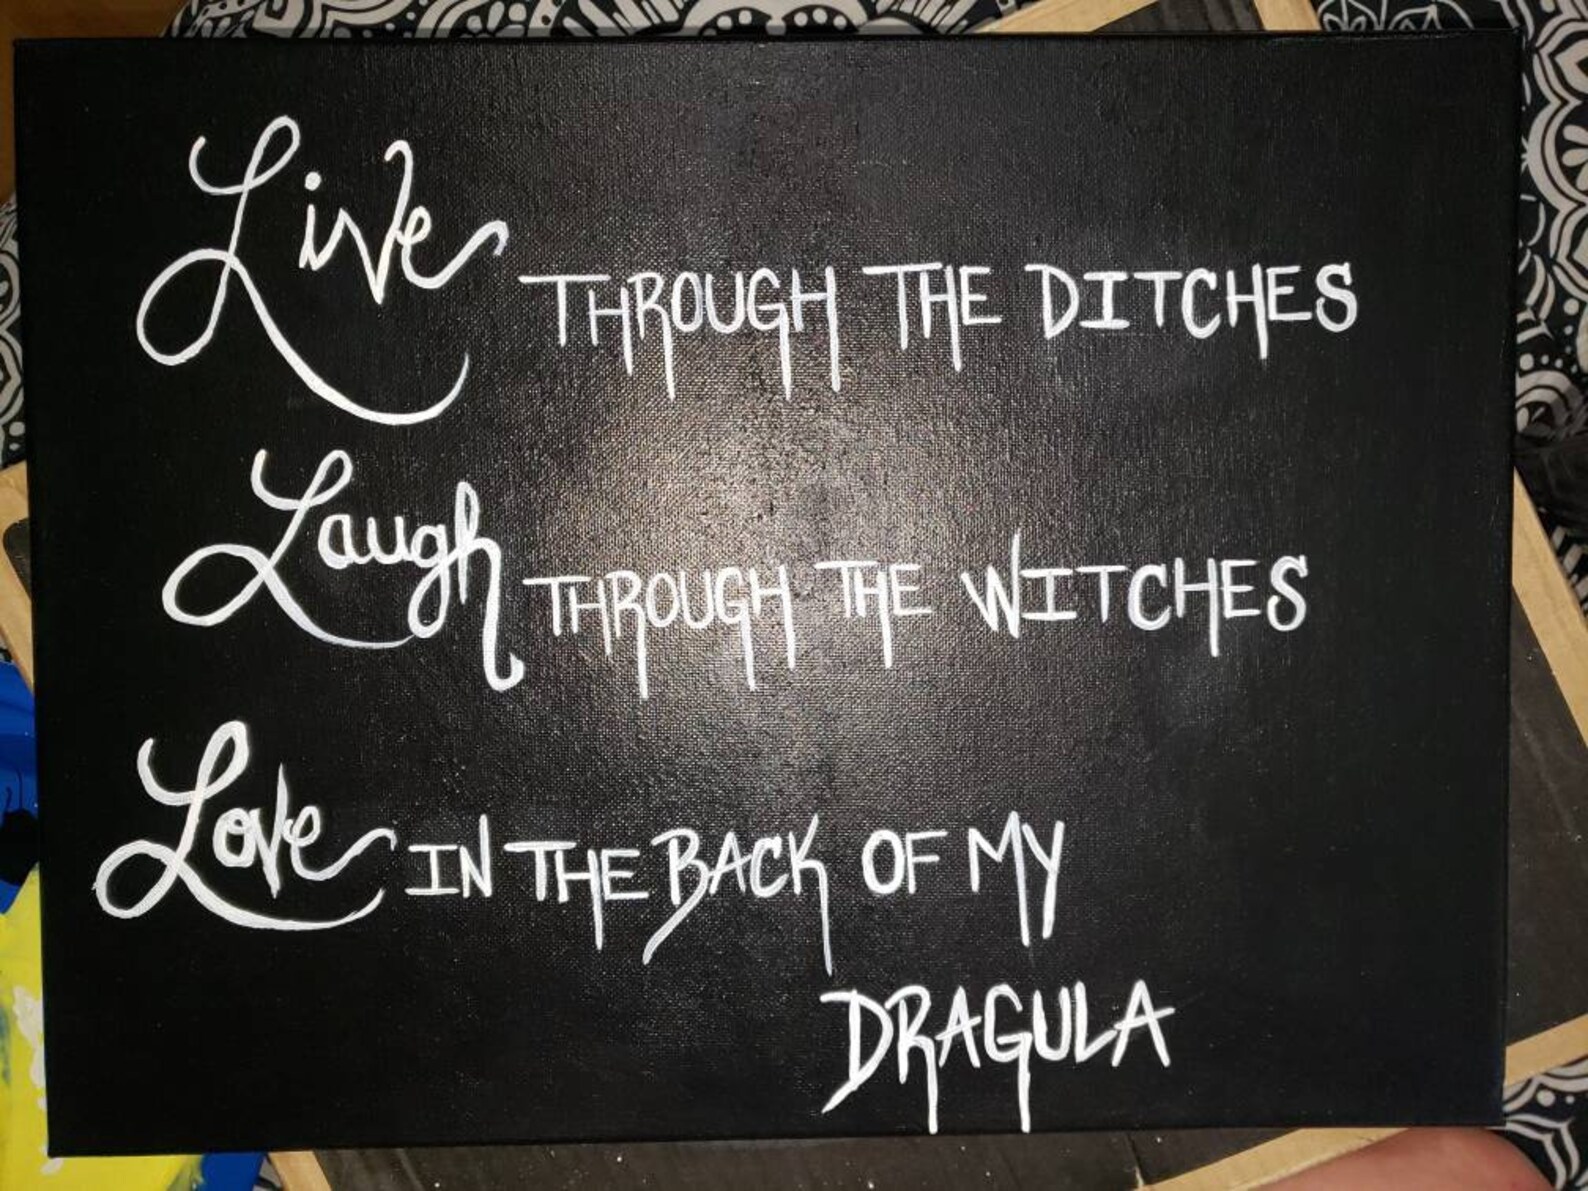 Live THROUGH THE DITCHES
Laugh THROUGH THE WITCHES
Love IN THE BACK OF MY
DRAGULA